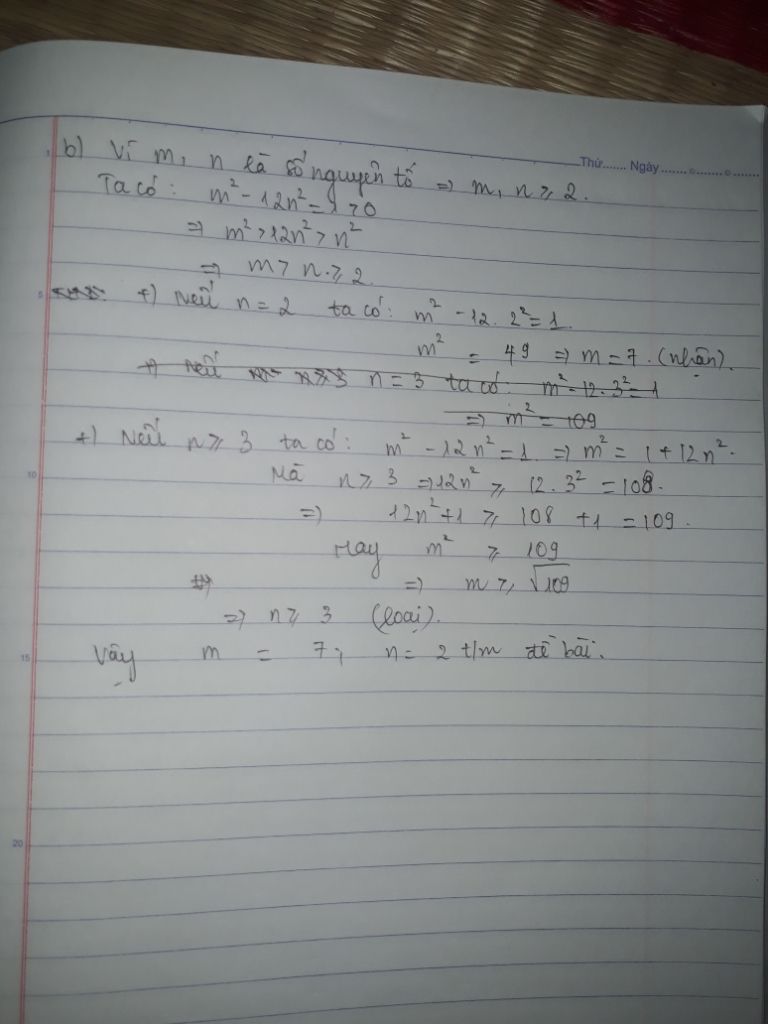 Thứ....... Ngày.......o.......o.......
b) Vì m, n là số nguyên tố => m, n ≥ 2.
Ta có: m² - 12n² = 1 > 0
=> m² > 12n² > n²
=> m > n ≥ 2
5
+) Nếu n = 2 ta có: m² - 12. 2² = 1.
m² = 49 => m = 7. (nhận).
+) Nếu n = 3 ta có: m² - 12. 3² = 1
=> m² = 109
+) Nếu n ≥ 3 ta có: m² - 12n² = 1. => m² = 1 + 12n².
10
Mà n ≥ 3 => 12n² ≥ 12. 3² = 108.
=> 12n² + 1 ≥ 108 + 1 = 109.
Hay m² ≥ 109
=> m ≥ √109
=> n ≥ 3 (loại).
15
Vậy m = 7; n = 2 t/m đề bài.
20